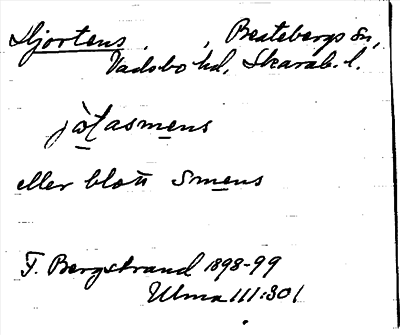 Hjortens, , Beatebergs Sn,
Vadsbo hd, Skarab. l.
jòtasmens
eller blott smens
F. Bergstrand 1898-99
Ulma 111:301